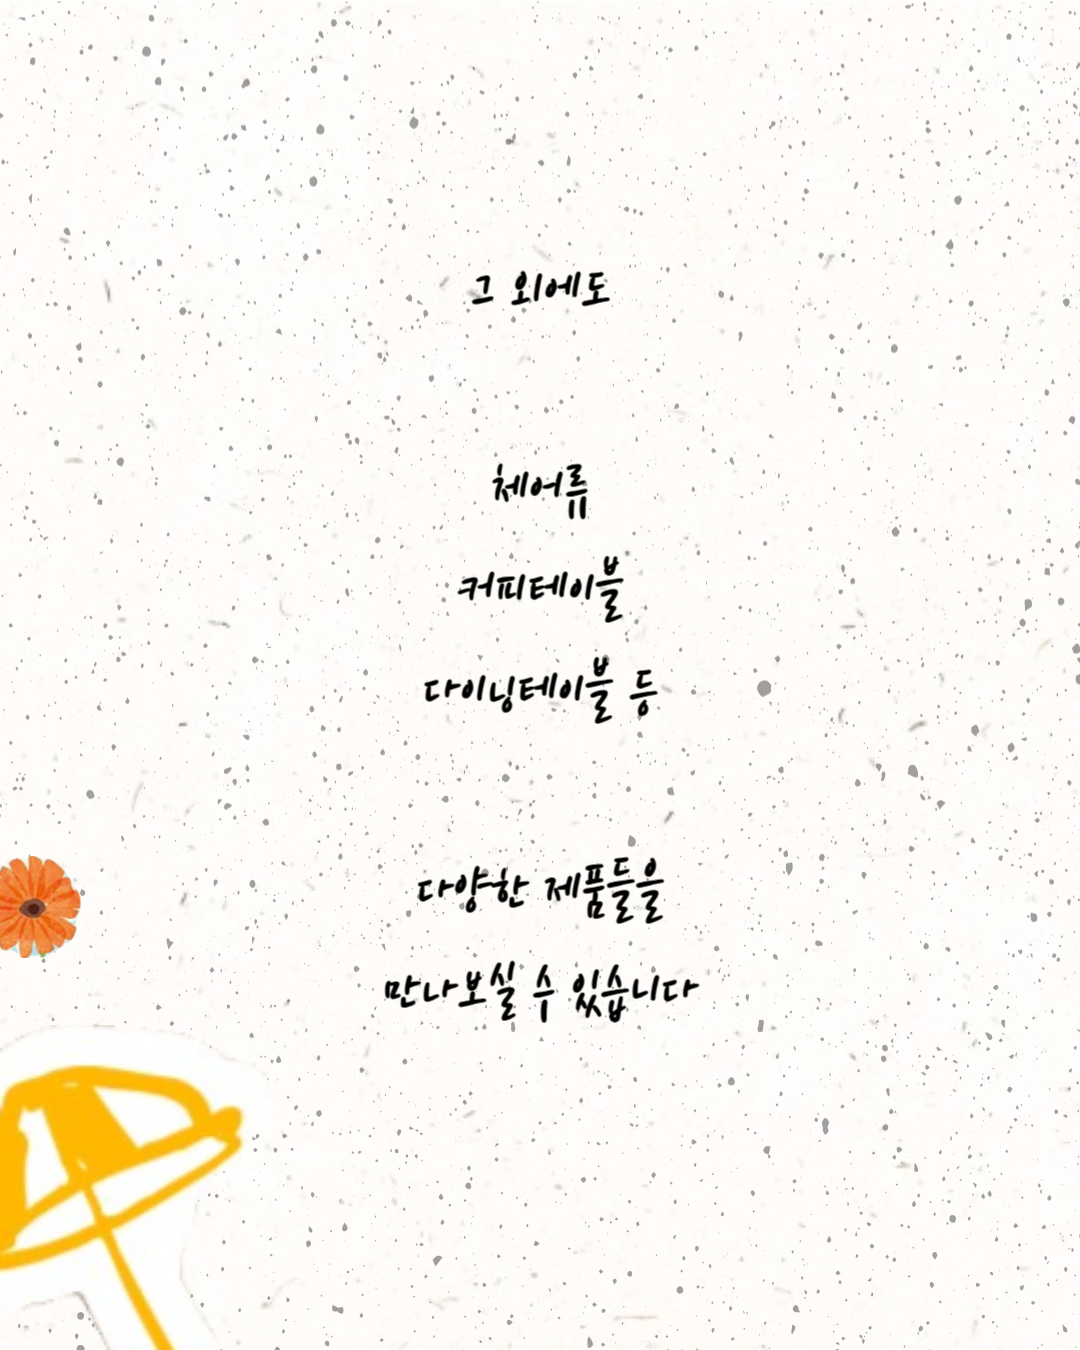 그 외에도
체어류
커피테이블
다이닝테이블 등
다양한 제품들을
만나보실 수 있습니다